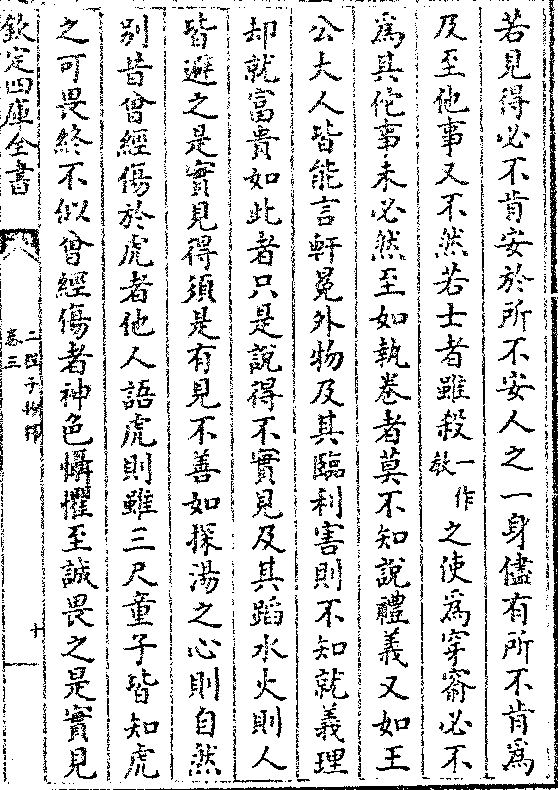 若見得必不肯安於所不安人之一身儘有所不肯為
及至他事又不然若士者雖殺一作教之使為穿窬必不
為其佗事未必然至如執卷者莫不知說禮義又如王
公大人皆能言軒冕外物及其臨利害則不知就義理
却就富貴如此者只是說得不實見及其蹈水火則人
皆避之是實見得須是有見不善如探湯之心則自然
别昔曾經傷於虎者他人語虎則雖三尺童子皆知虎
之可畏終不似曾經傷者神色懾懼至誠畏之是實見
欽定四庫全書
二程子抄釋
卷三
十